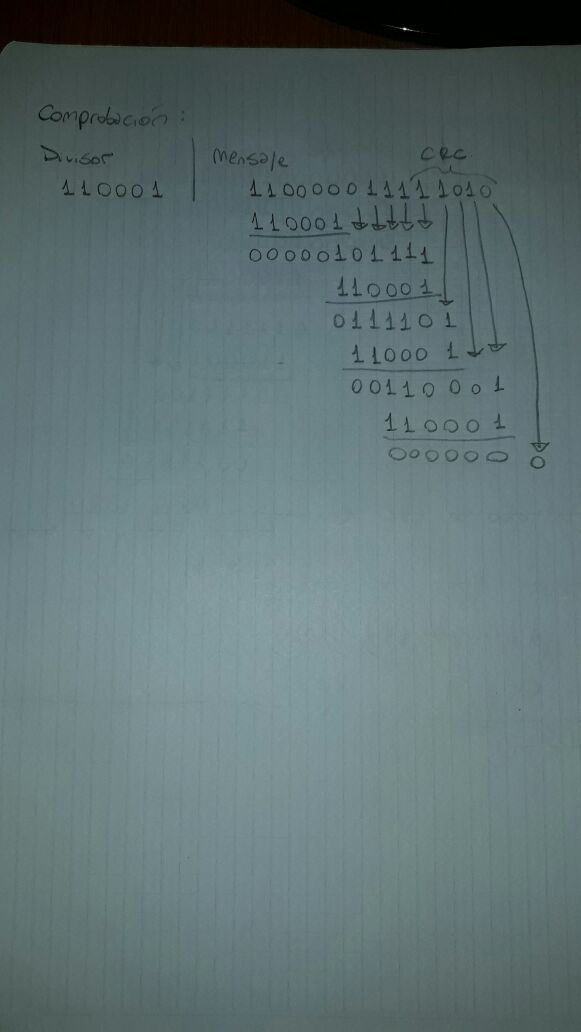 Comprobación:
Divisor Mensaje CRC
110001 110000011111010
110001
00000101111
110001
0111101
110001
00110001
110001
000000 0